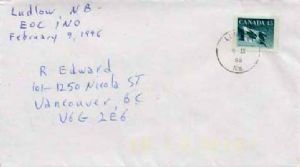 Ludlow NB-
EOC 1NO
February 9, 1996
CANADA 45
R Edward
101-1250 Nicola ST
Vancouver, BC
V6G 2E6